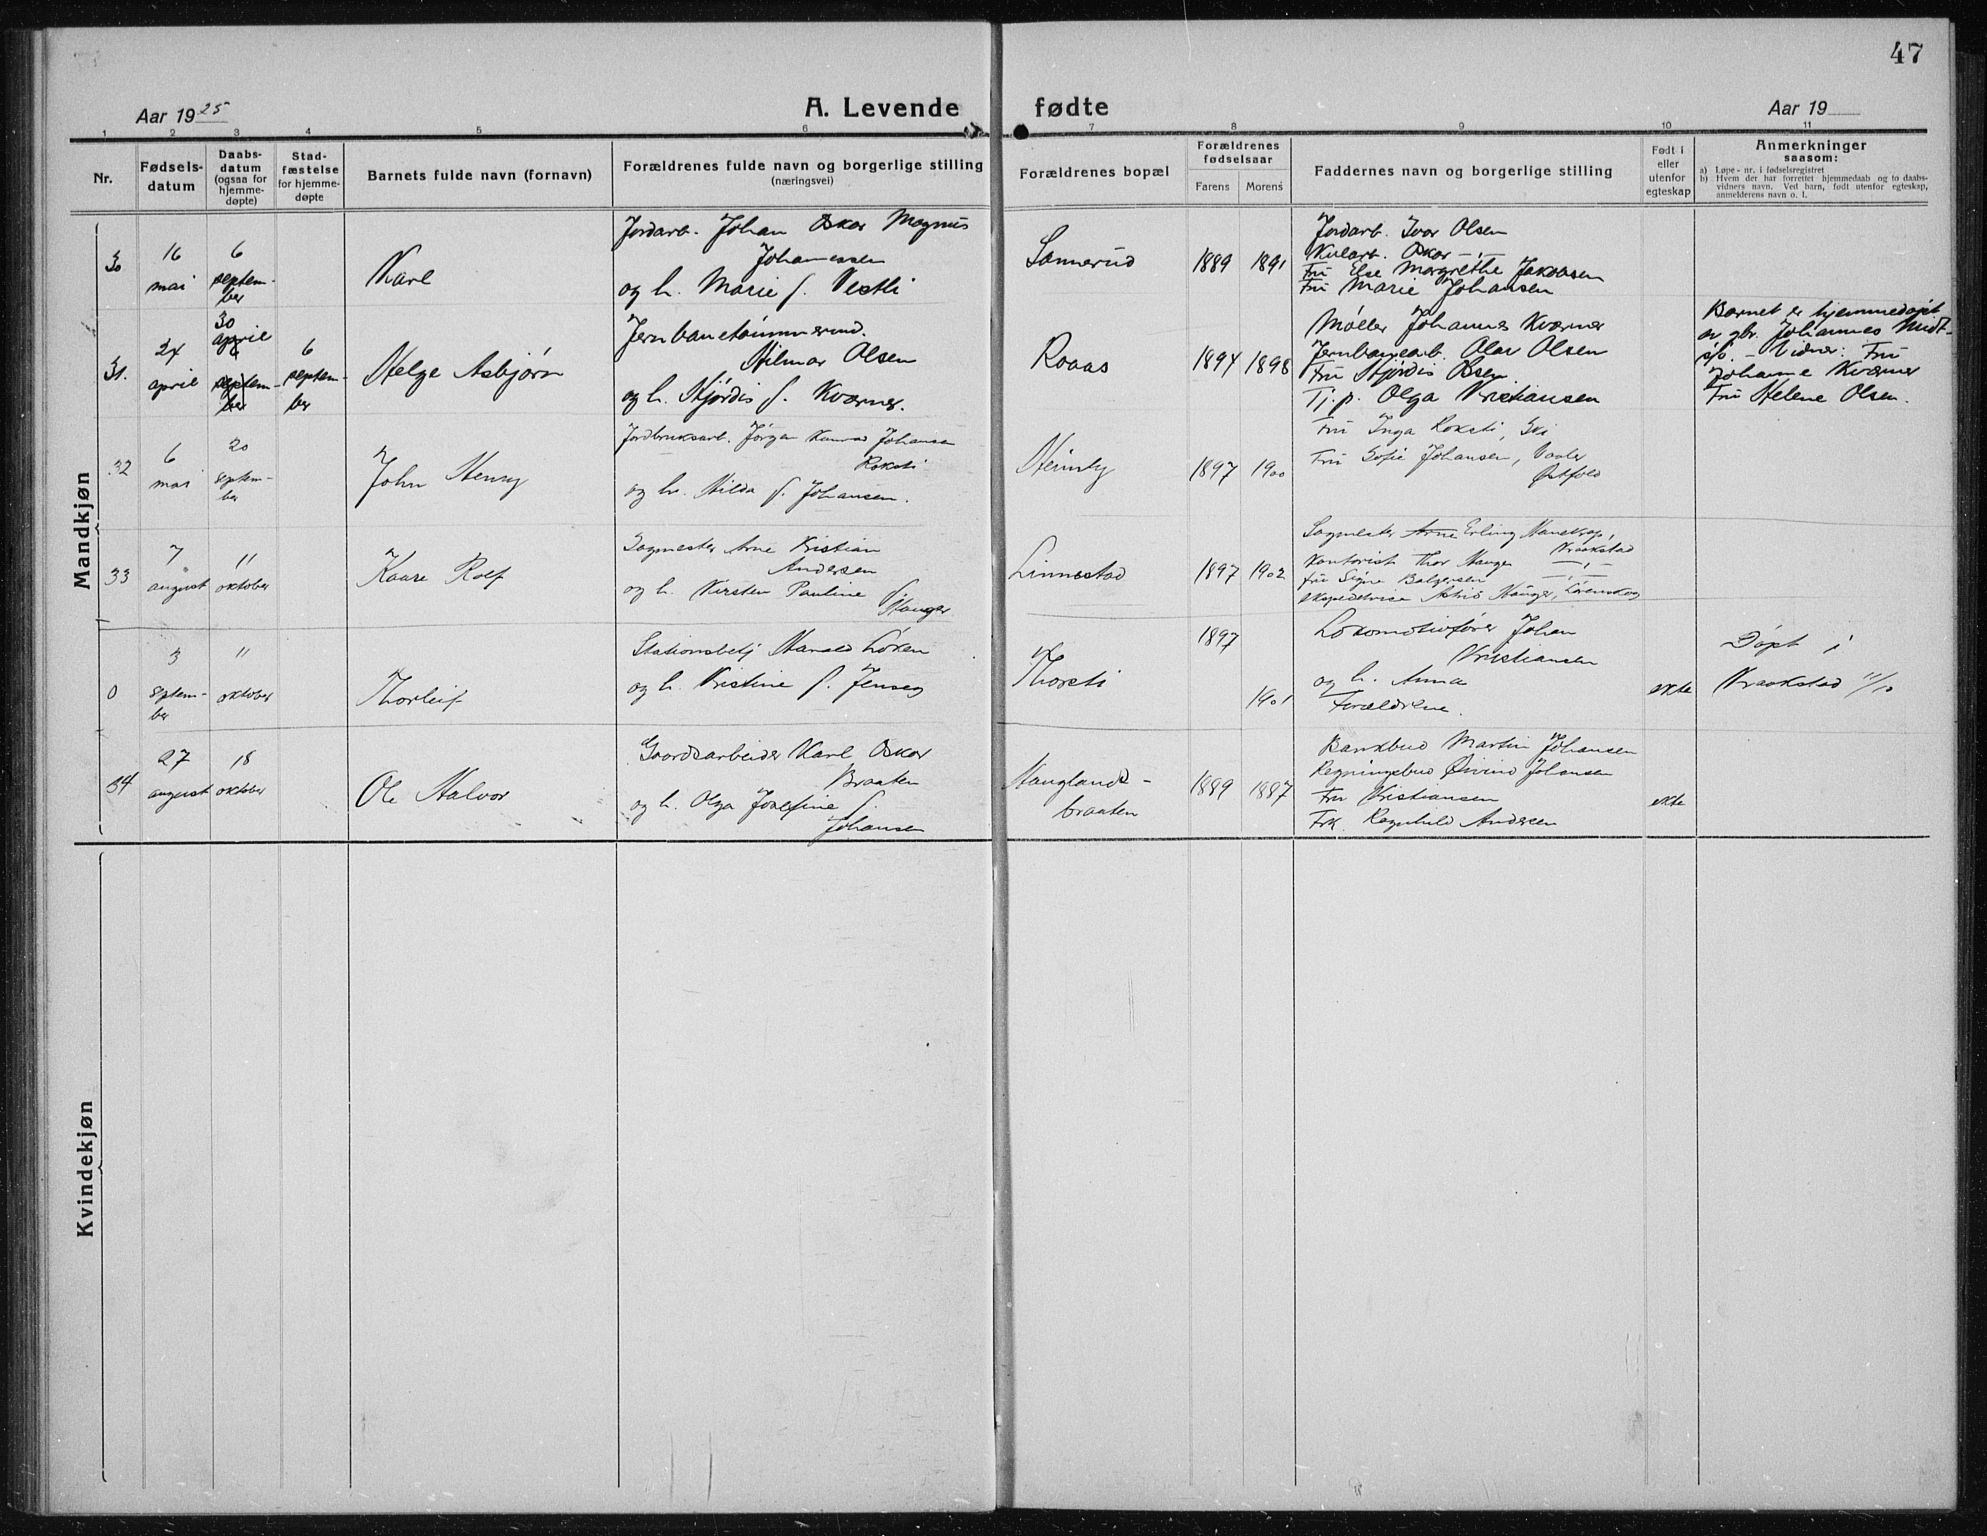 47
Aar 1925
A. Levende fødte
Aar 19
1 2 3 4 5 6 7 8 9 10 11
Nr.
Fødsels-
datum
Daabs-
datum
(ogsaa for
hjemme-
døpte)
Stad-
fæstelse
for hjemme-
døpte
Barnets fulde navn (fornavn)
Forældrenes fulde navn og borgerlige stilling
(næringsvei)
Forældrenes bopæl
Forældrenes
fødselsaar
Farens Morens
Faddernes navn og borgerlige stilling
Født i
eller
utenfor
egteskap
Anmerkninger
saasom:
a) Løpe-nr. i fødselsregistret
b) Hvem der har forrettet hjemmedaab og to daabs-
vidners navn. Ved barn, født utenfor egteskap,
anmelderens navn o. l.
Mandkjøn
30
16
mai
6
septem-
ber
Karl
Jordarb. Johan Oskar Magnus
Johannessen
og h. Marie f. Vestli
Sannerud
1889 1891
Jordarb. Ivar Olsen
Oskar —"—
Fru Else Margrethe Jakobsen
Fru Marie Johansen
31.
24
april
30
april
6
septem-
ber
6
septem-
ber
Helge Asbjørn
Jernbanetømmermd.
Hilmar Olsen
og h. Hjørdis f. Kværner.
Roaas
1894 1898
Møller Johannes Kværner
Jernbanearb. Olav Olsen
Fru Hjørdis Olsen
Tj.p. Olga Kristiansen
Barnet er hjemmedøpt
av gbr. Johannes Midt-
sjø. - Vidner: Fru
Johanne Kværner
Fru Helene Olsen.
32
6
mai
20
septem-
ber
John Henry
Jordbruksarb. Jørgen Konrad Johansen
Roksti
og h. Hilda f. Johansen.
1897 1900
Fru Inga Roksti, Ski
Fru Sofie Johansen, Vaaler
Østfold
33
7
august
11
oktober
Kaare Rolf
Sagmester Arne Kristian
Andersen
og h. Kirsten Pauline f.
Hauger
Linnestad
1897 1902
Sagmester Arne Erling
Kraakstad
Kontorist Thor Hauger —"—
fru Signe —"—
Astrid Hauger, Lørenskog
0
3
septem-
ber
11
oktober
Thorleif
Stationsbetj Harald Løken
og h. Kristine f. Jenseg
Thorsti
1897
1901
Lokomotivfører Johan
Kristiansen
og h. Anna
Forældrene.
ekte
Døpt i
Kraakstad 11/10
34
27
august
18
oktober
Ole Halvor
Gaardsarbeider Karl Oskar
Braaten
og h. Olga Josefine f.
Johansen
Hauglands-
braaten
1889 1887
Bankbud Martin Johansen
Regningsbud Øivind Johansen
Fru Kristiansen
Frk. Ragnhild Andersen
ekte
Kvindekjøn